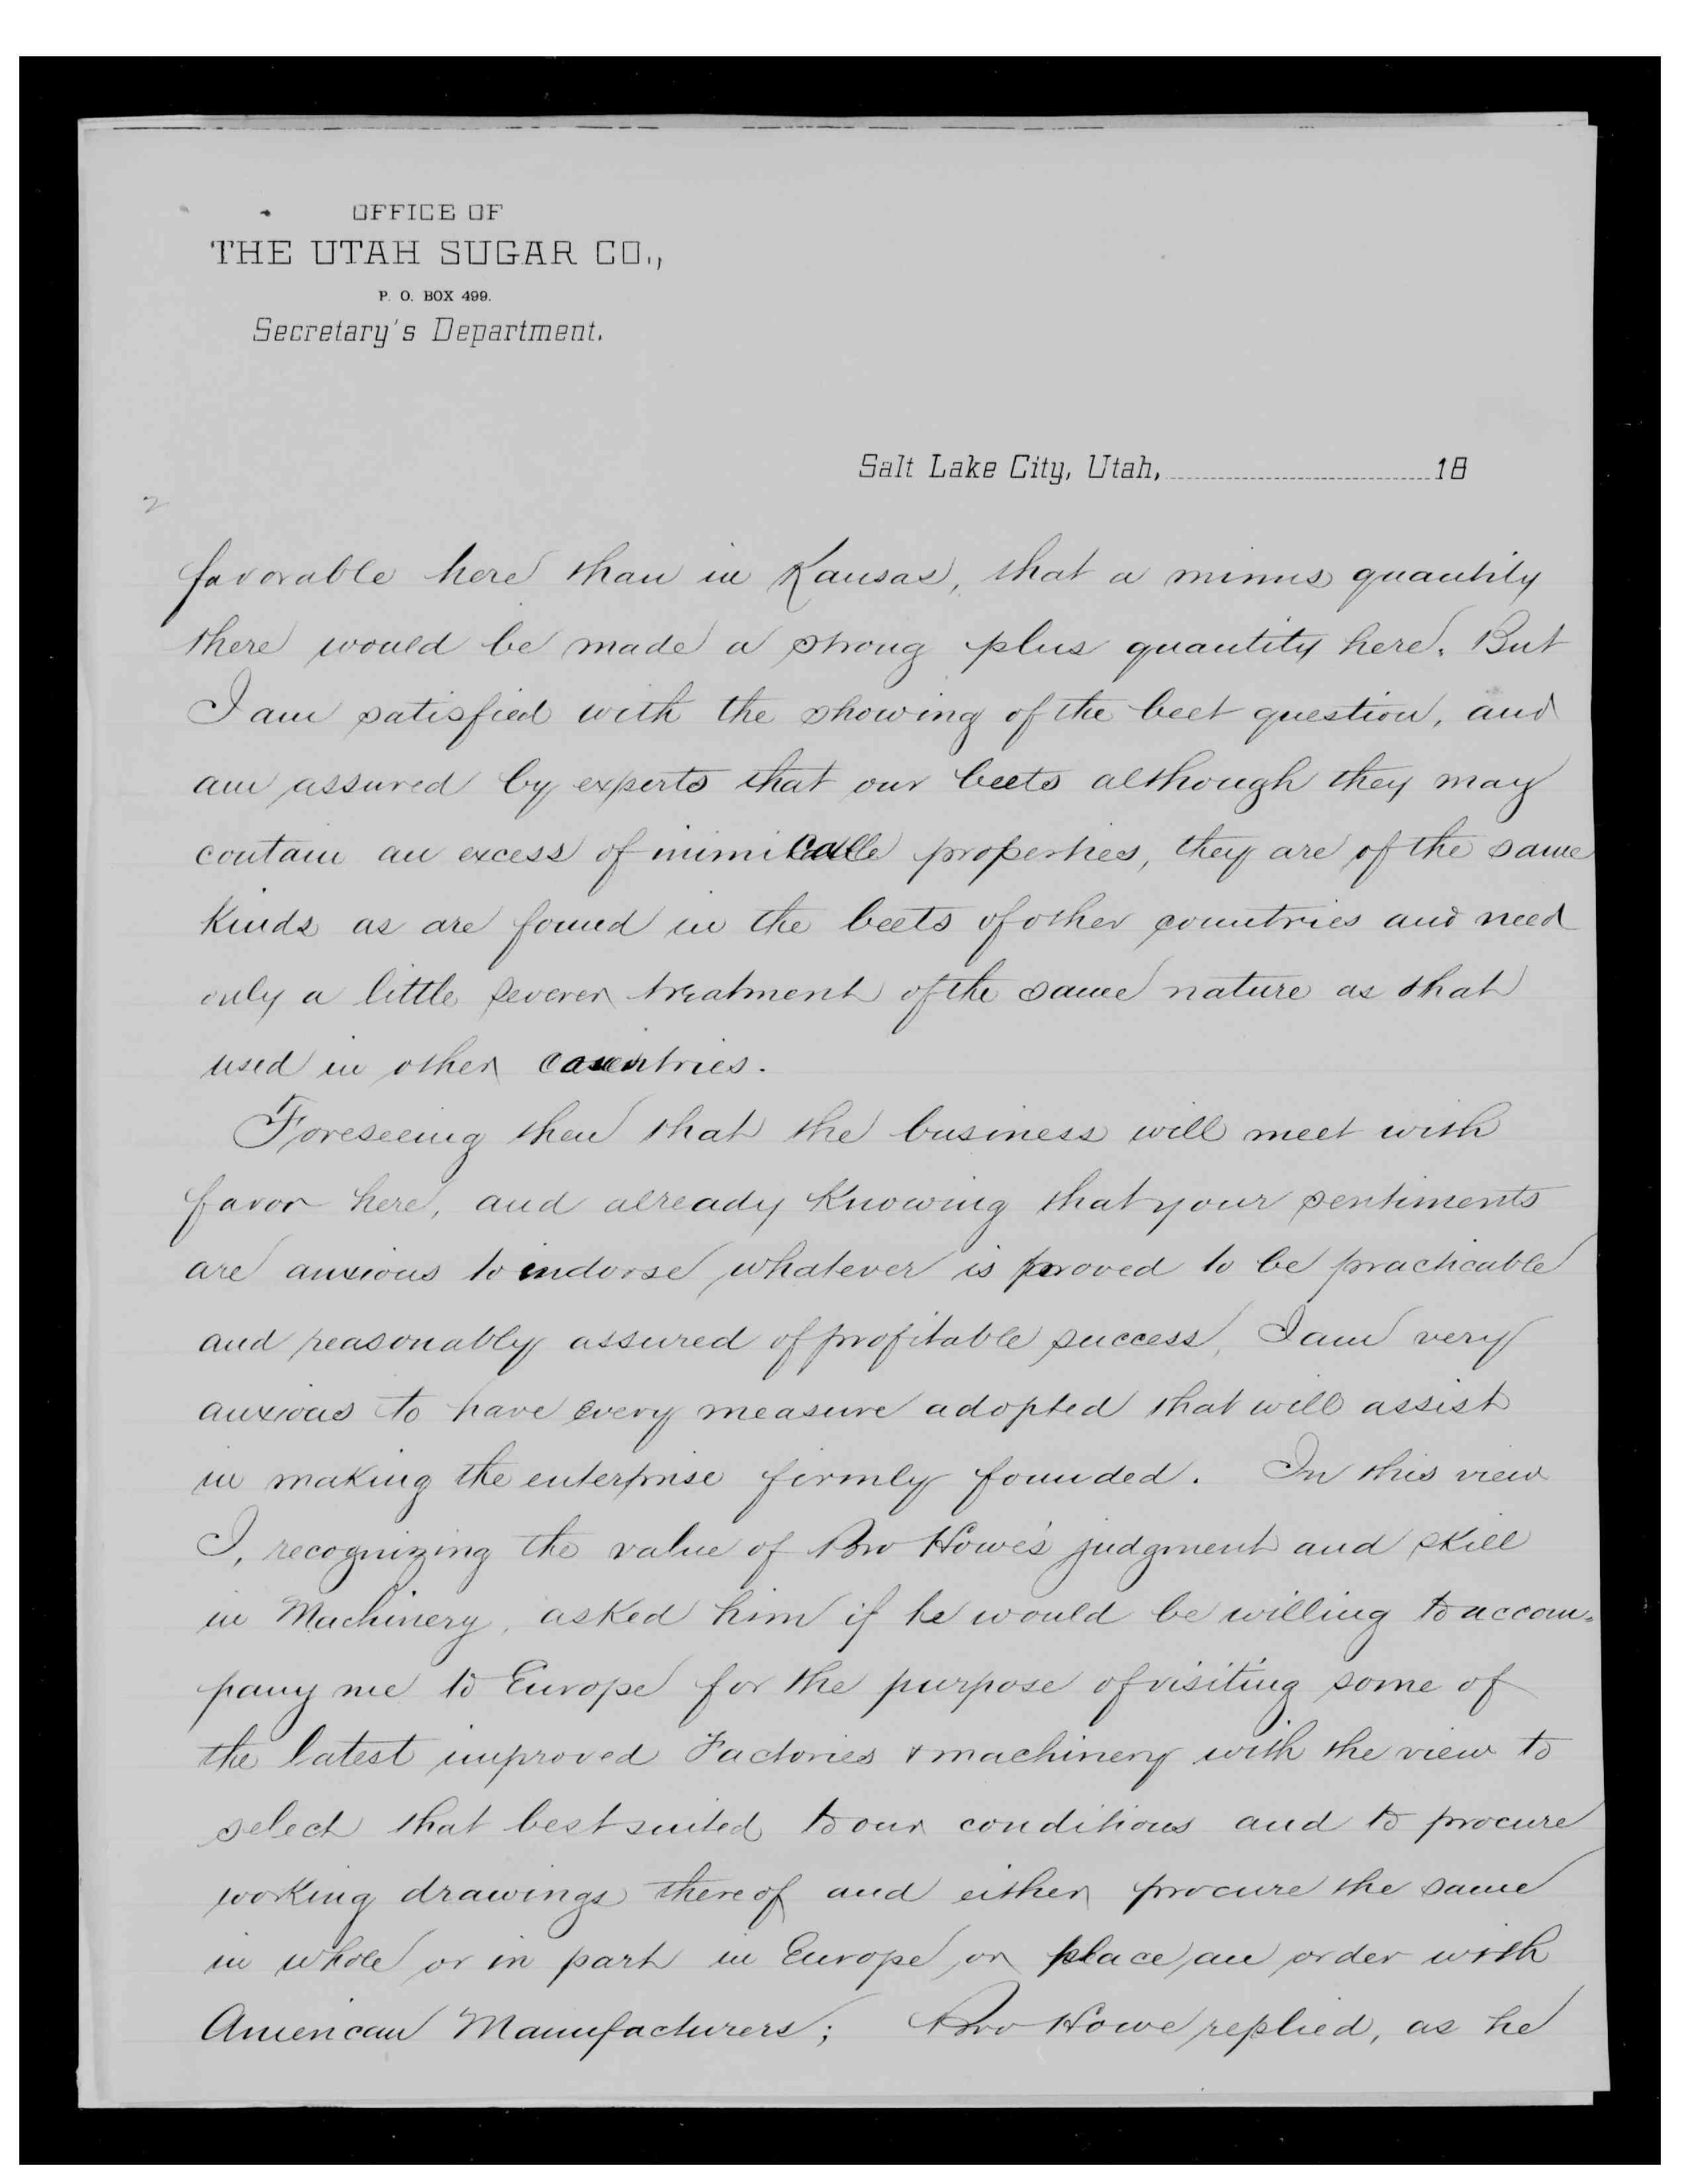 OFFICE OF
THE UTAH SUGAR CO.,
P. O. BOX 499.
Secretary's Department.
Salt Lake City, Utah, 18
2
favorable here than in Kansas, that a minus quantity
there would be made a strong plus quantity here. But
I am satisfied with the showing of the beet question, and
am assured by experts that our beets although they may
contain an excess of properties, they are of the same
Kinds as are found in the beets of other countries and need
only a little severer treatment of the same nature as that
used in other countries.
Foreseeing then that the business will meet with
favor here, and already Knowing that your sentiments
are anxious to indorse whatever is proved to be practicable
and reasonably assured of profitable success, I am very
anxious to have every measure adopted that will assist
in making the enterprise firmly founded. In this view
I, recognizing the value of Bro Howe's judgment and skill
in Machinery, asked him if he would be willing to accom-
pany me to Europe for the purpose of visiting some of
the latest improved Factories & machinery with the view to
select that best suited to our conditions and to procure
working drawings thereof and either procure the same
in whole or in part in Europe, or place an order with
American Manufacturers; Bro Howe replied, as he